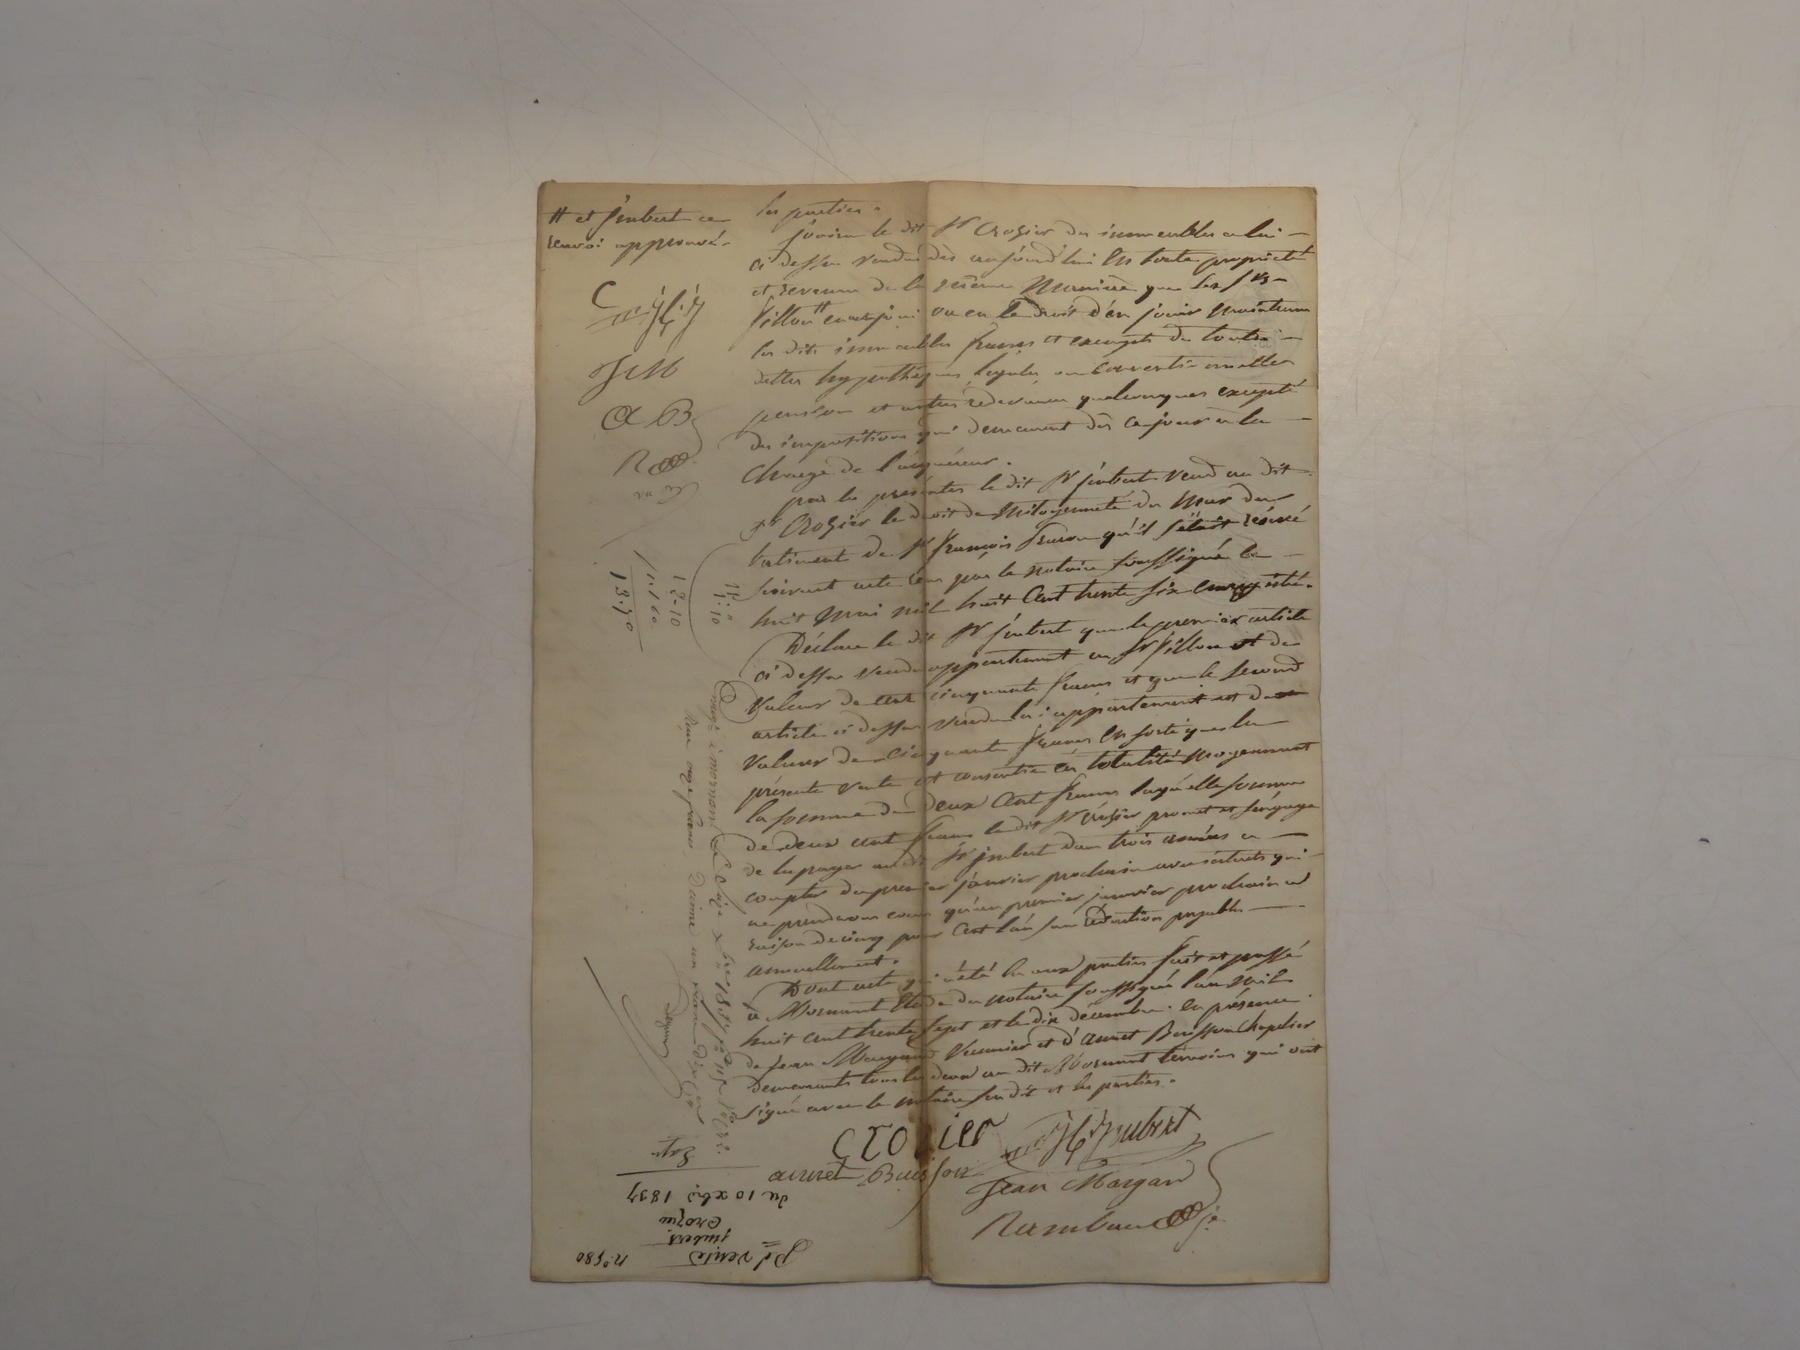 # et Jmbert ce
renvoi approuvé.
C
J M
A B
R
les parties.
Jouira le dit Sr Crozier des immeubles a lui
ci dessus vendus dès aujourd'hui en toute propriété
et revenu de la même manière que les Srs
Fillon # en ont joui ou eu le droit d'en jouir
les dits immeubles francs et exempts de toutes
dettes hypothèques légales ou conventionnelles
pension et autres redevances quelconques excepté
des impositions qui demeurent dès ce jour à la
charge de l'acquéreur.
par les présentes le dit Sr Jmbert vend au dit
Sr Crozier le droit de mitoyenneté du mur du
batiment de Sr françois qu'il s'était réservé
suivant acte reçu par le notaire soussigné le
huit mai mil huit cent trente six enregistré.
Déclare le dit Sr Jmbert que le premier article
ci dessus vendu appartenant au Sr Fillon est de
valeur de cent cinquante francs et que le second
article ci dessus vendu lui appartenant est de
valeur de cinquante francs en sorte que la
présente vente est consentie en totalité moyennant
la somme de deux cent francs laquelle somme
de deux cent francs le dit Sr Crozier promet et s'engage
de la payer au dit Sr Jmbert dans trois années a
compter du premier janvier prochain avec intérêts qui
ne prendront cours qu'au premier janvier prochain a
raison de cinq pour cent l'an sans rétention payables
annuellement.
Dont acte qui a été lu aux parties fait et passé
à Mornant Etude du notaire soussigné l'an mil
huit cent trente sept et le dix décembre en présence
de Jean Margand et d'annet Buisson chapelier
demeurants tous les deux au dit Mornant témoins qui ont
signé avec le notaire susdit et les parties.
Crozier Jmbert
annet Buisson
Jean Margand
Rambaud
12-10
13.70
11.10
Expn
du 10 xbre 1837
Crozier
Jmbert
vente
n° 580